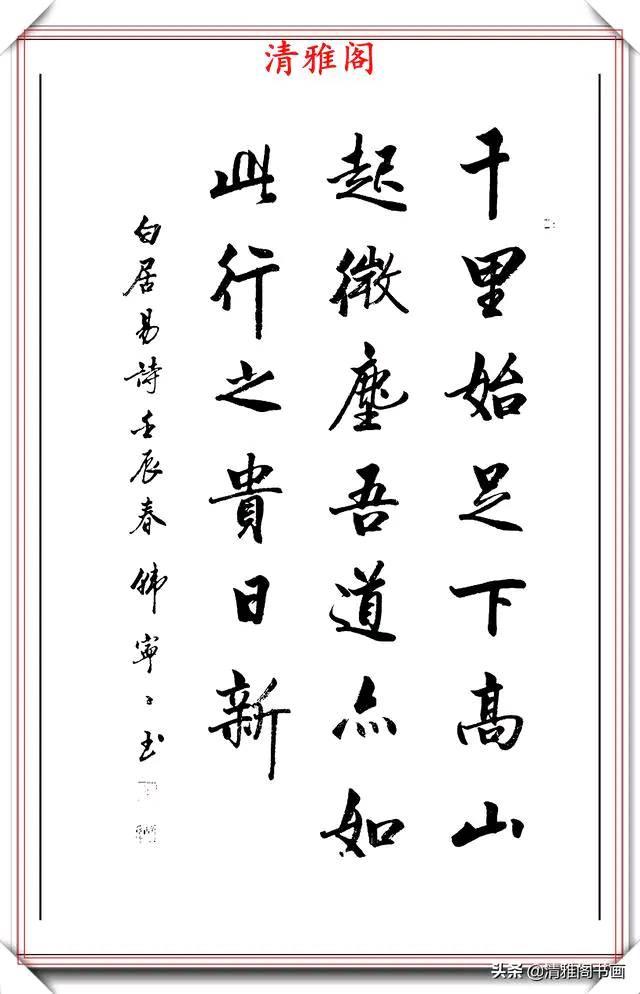 清雅阁
千里始足下高山
起微塵吾道亦如
此行之貴日新
白居易詩壬辰春韩寧〻书
头条 @清雅阁书画